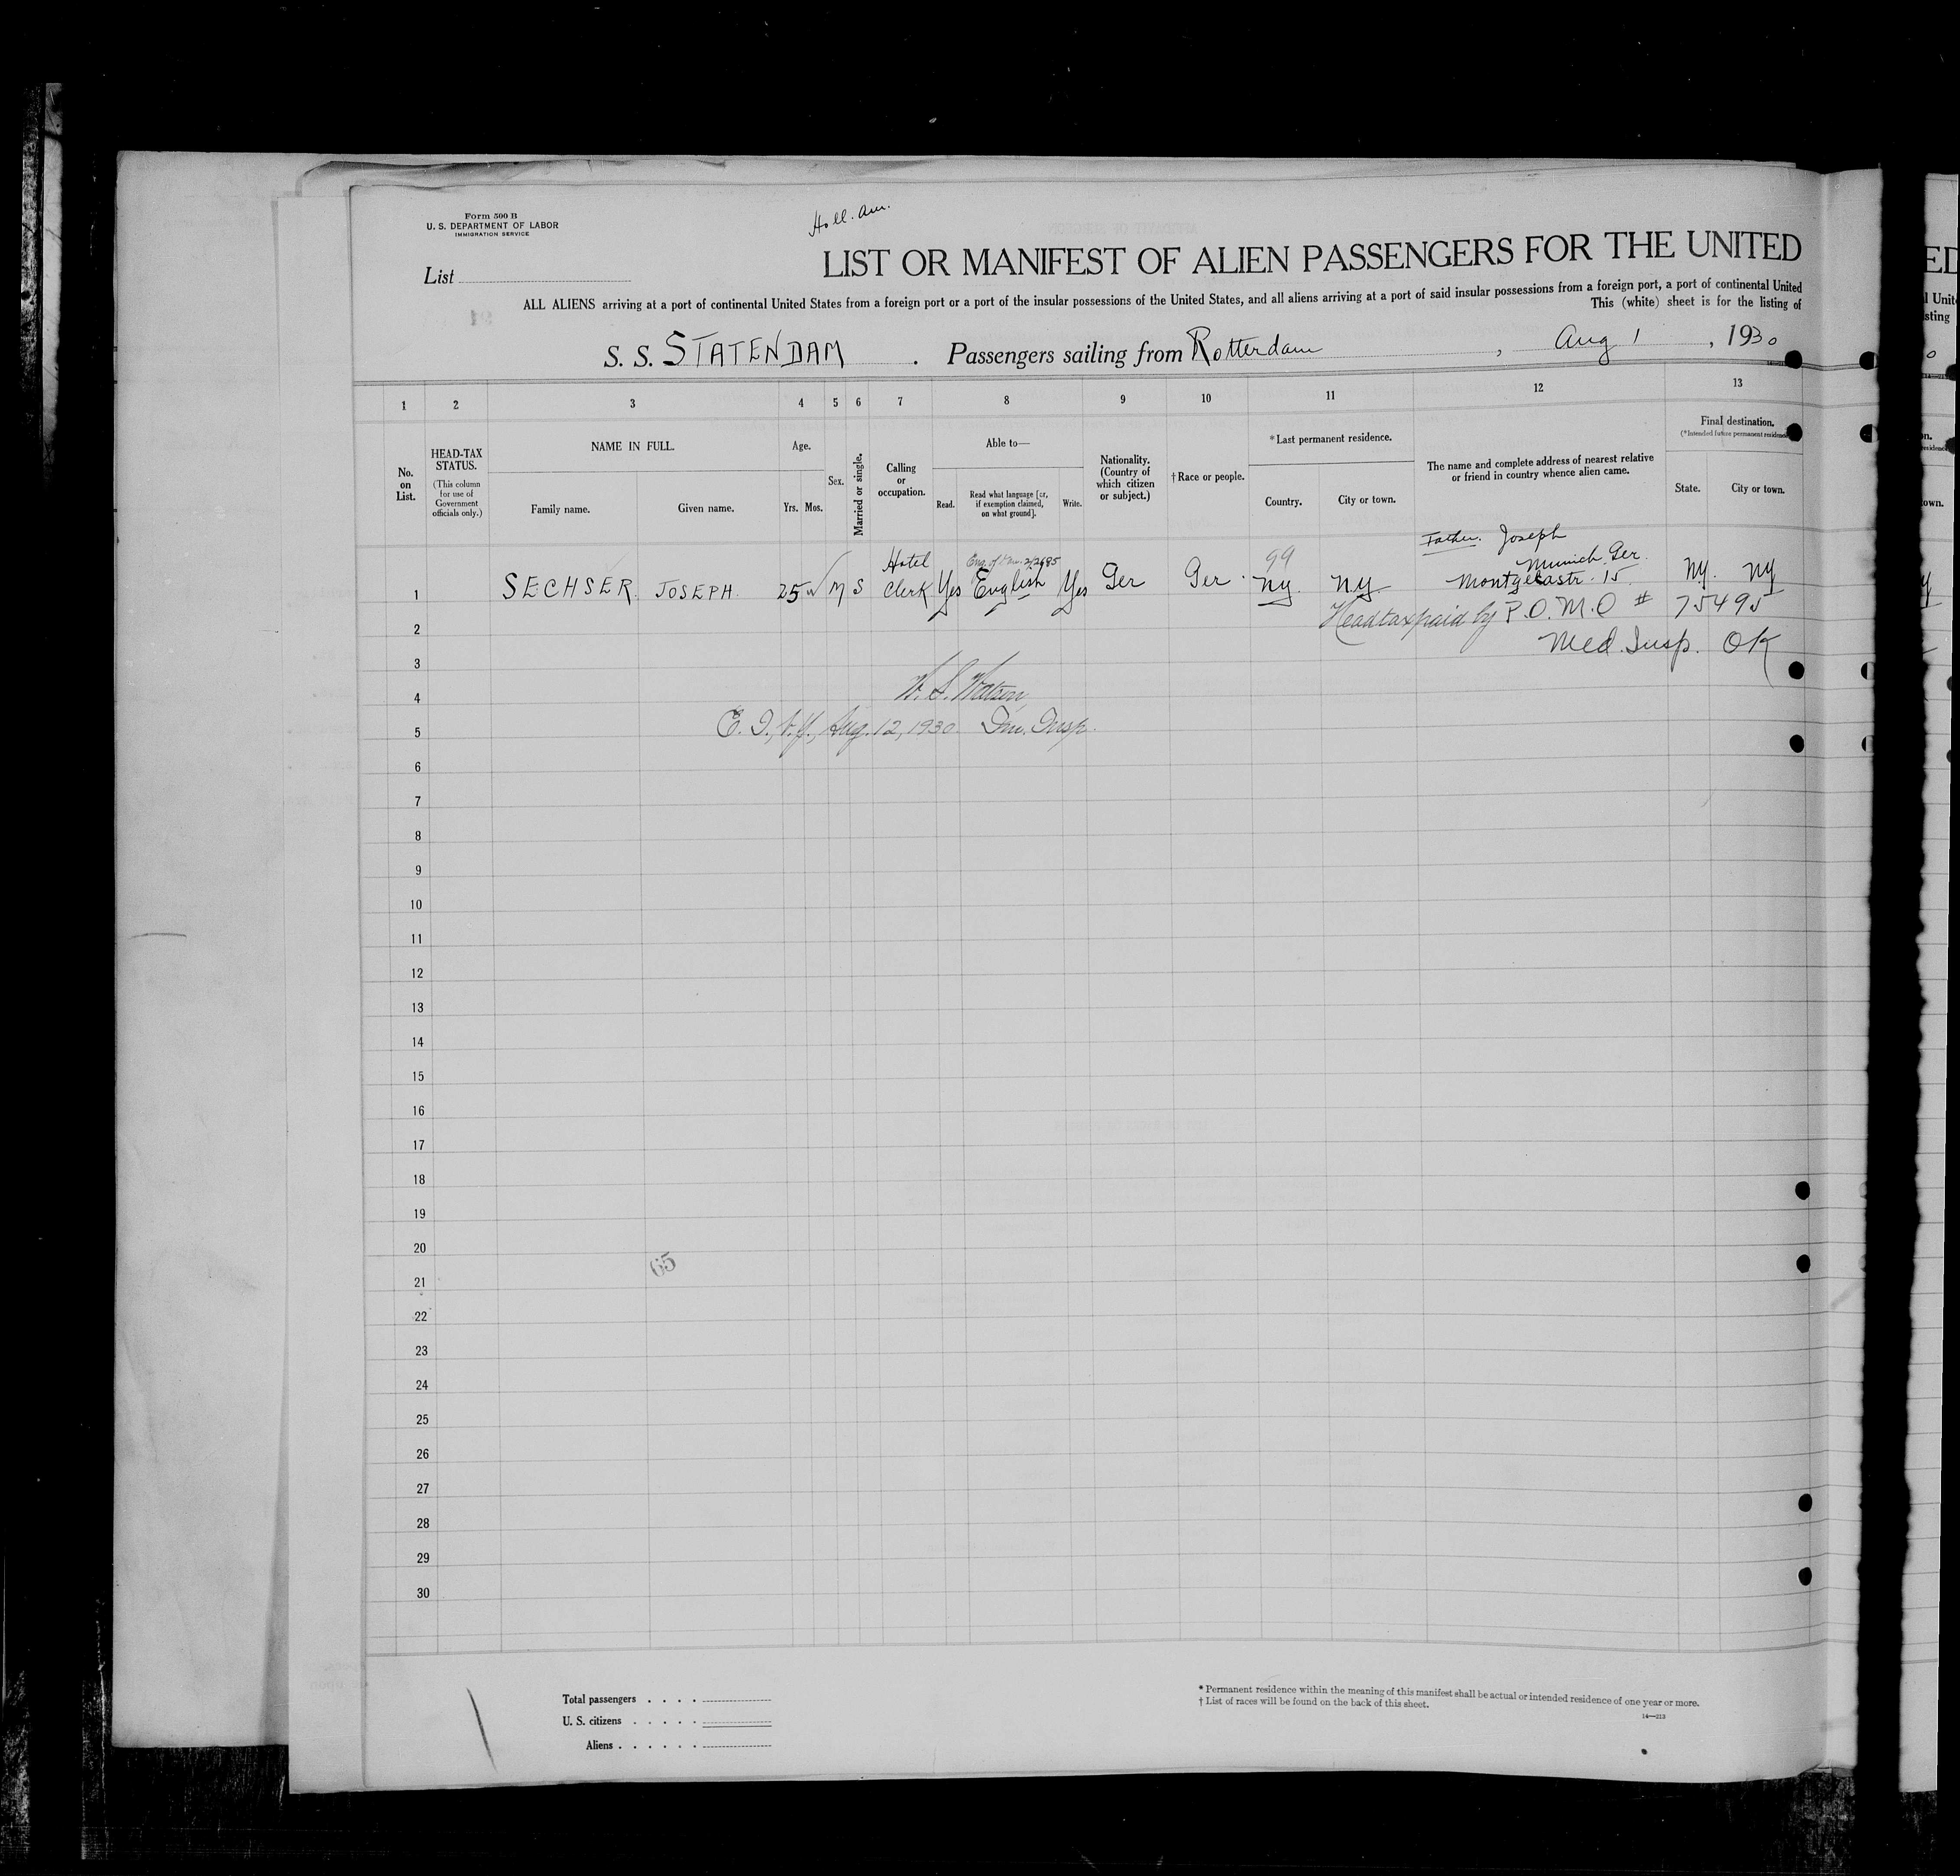 Form 500 B
U. S. DEPARTMENT OF LABOR
IMMIGRATION SERVICE
Holl. Am.
List
LIST OR MANIFEST OF ALIEN PASSENGERS FOR THE UNITED
ALL ALIENS arriving at a port of continental United States from a foreign port or a port of the insular possessions of the United States, and all aliens arriving at a port of said insular possessions from a foreign port, a port of continental United
This (white) sheet is for the listing of
S. S. STATENDAM . Passengers sailing from Rotterdam , Aug 1 , 1930
1 2 3 4 5 6 7 8 9 10 11 12 13
No. on List.
HEAD-TAX STATUS.
(This column for use of Government officials only.)
NAME IN FULL.
Family name. Given name.
Age.
Yrs. Mos.
Sex.
Married or single.
Calling or occupation.
Able to—
Read. Read what language [or, if exemption claimed, on what ground]. Write.
Nationality. (Country of which citizen or subject.)
† Race or people.
* Last permanent residence.
Country. City or town.
The name and complete address of nearest relative or friend in country whence alien came.
Final destination.
(*Intended future permanent residence)
State. City or town.
Father. Joseph
Munich. Ger.
1 SECHSER. JOSEPH. 25 M S Hotel Clerk Yes English Yes Ger Ger. 99 NY. NY. Montgelasstr. 15. NY. NY
2 Head tax paid by P.O.M.O # 75495
Med. Insp. OK
3
4 W. S. Watson
5 E. I., N.Y., Aug. 12, 1930. Im. Insp.
6
7
8
9
10
11
12
13
14
15
16
17
18
19
20
65
21
22
23
24
25
26
27
28
29
30
Total passengers . . . .
U. S. citizens . . . . .
Aliens . . . . . .
* Permanent residence within the meaning of this manifest shall be actual or intended residence of one year or more.
† List of races will be found on the back of this sheet.
14—213